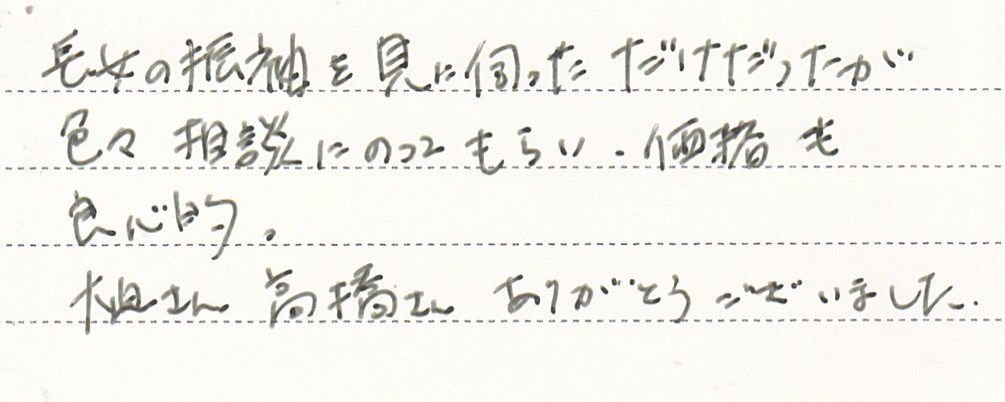 長女の振袖を見に伺っただけだったが
色々相談にのってもらい、価格も
良心的。
さん 高橋さん ありがとうございました。